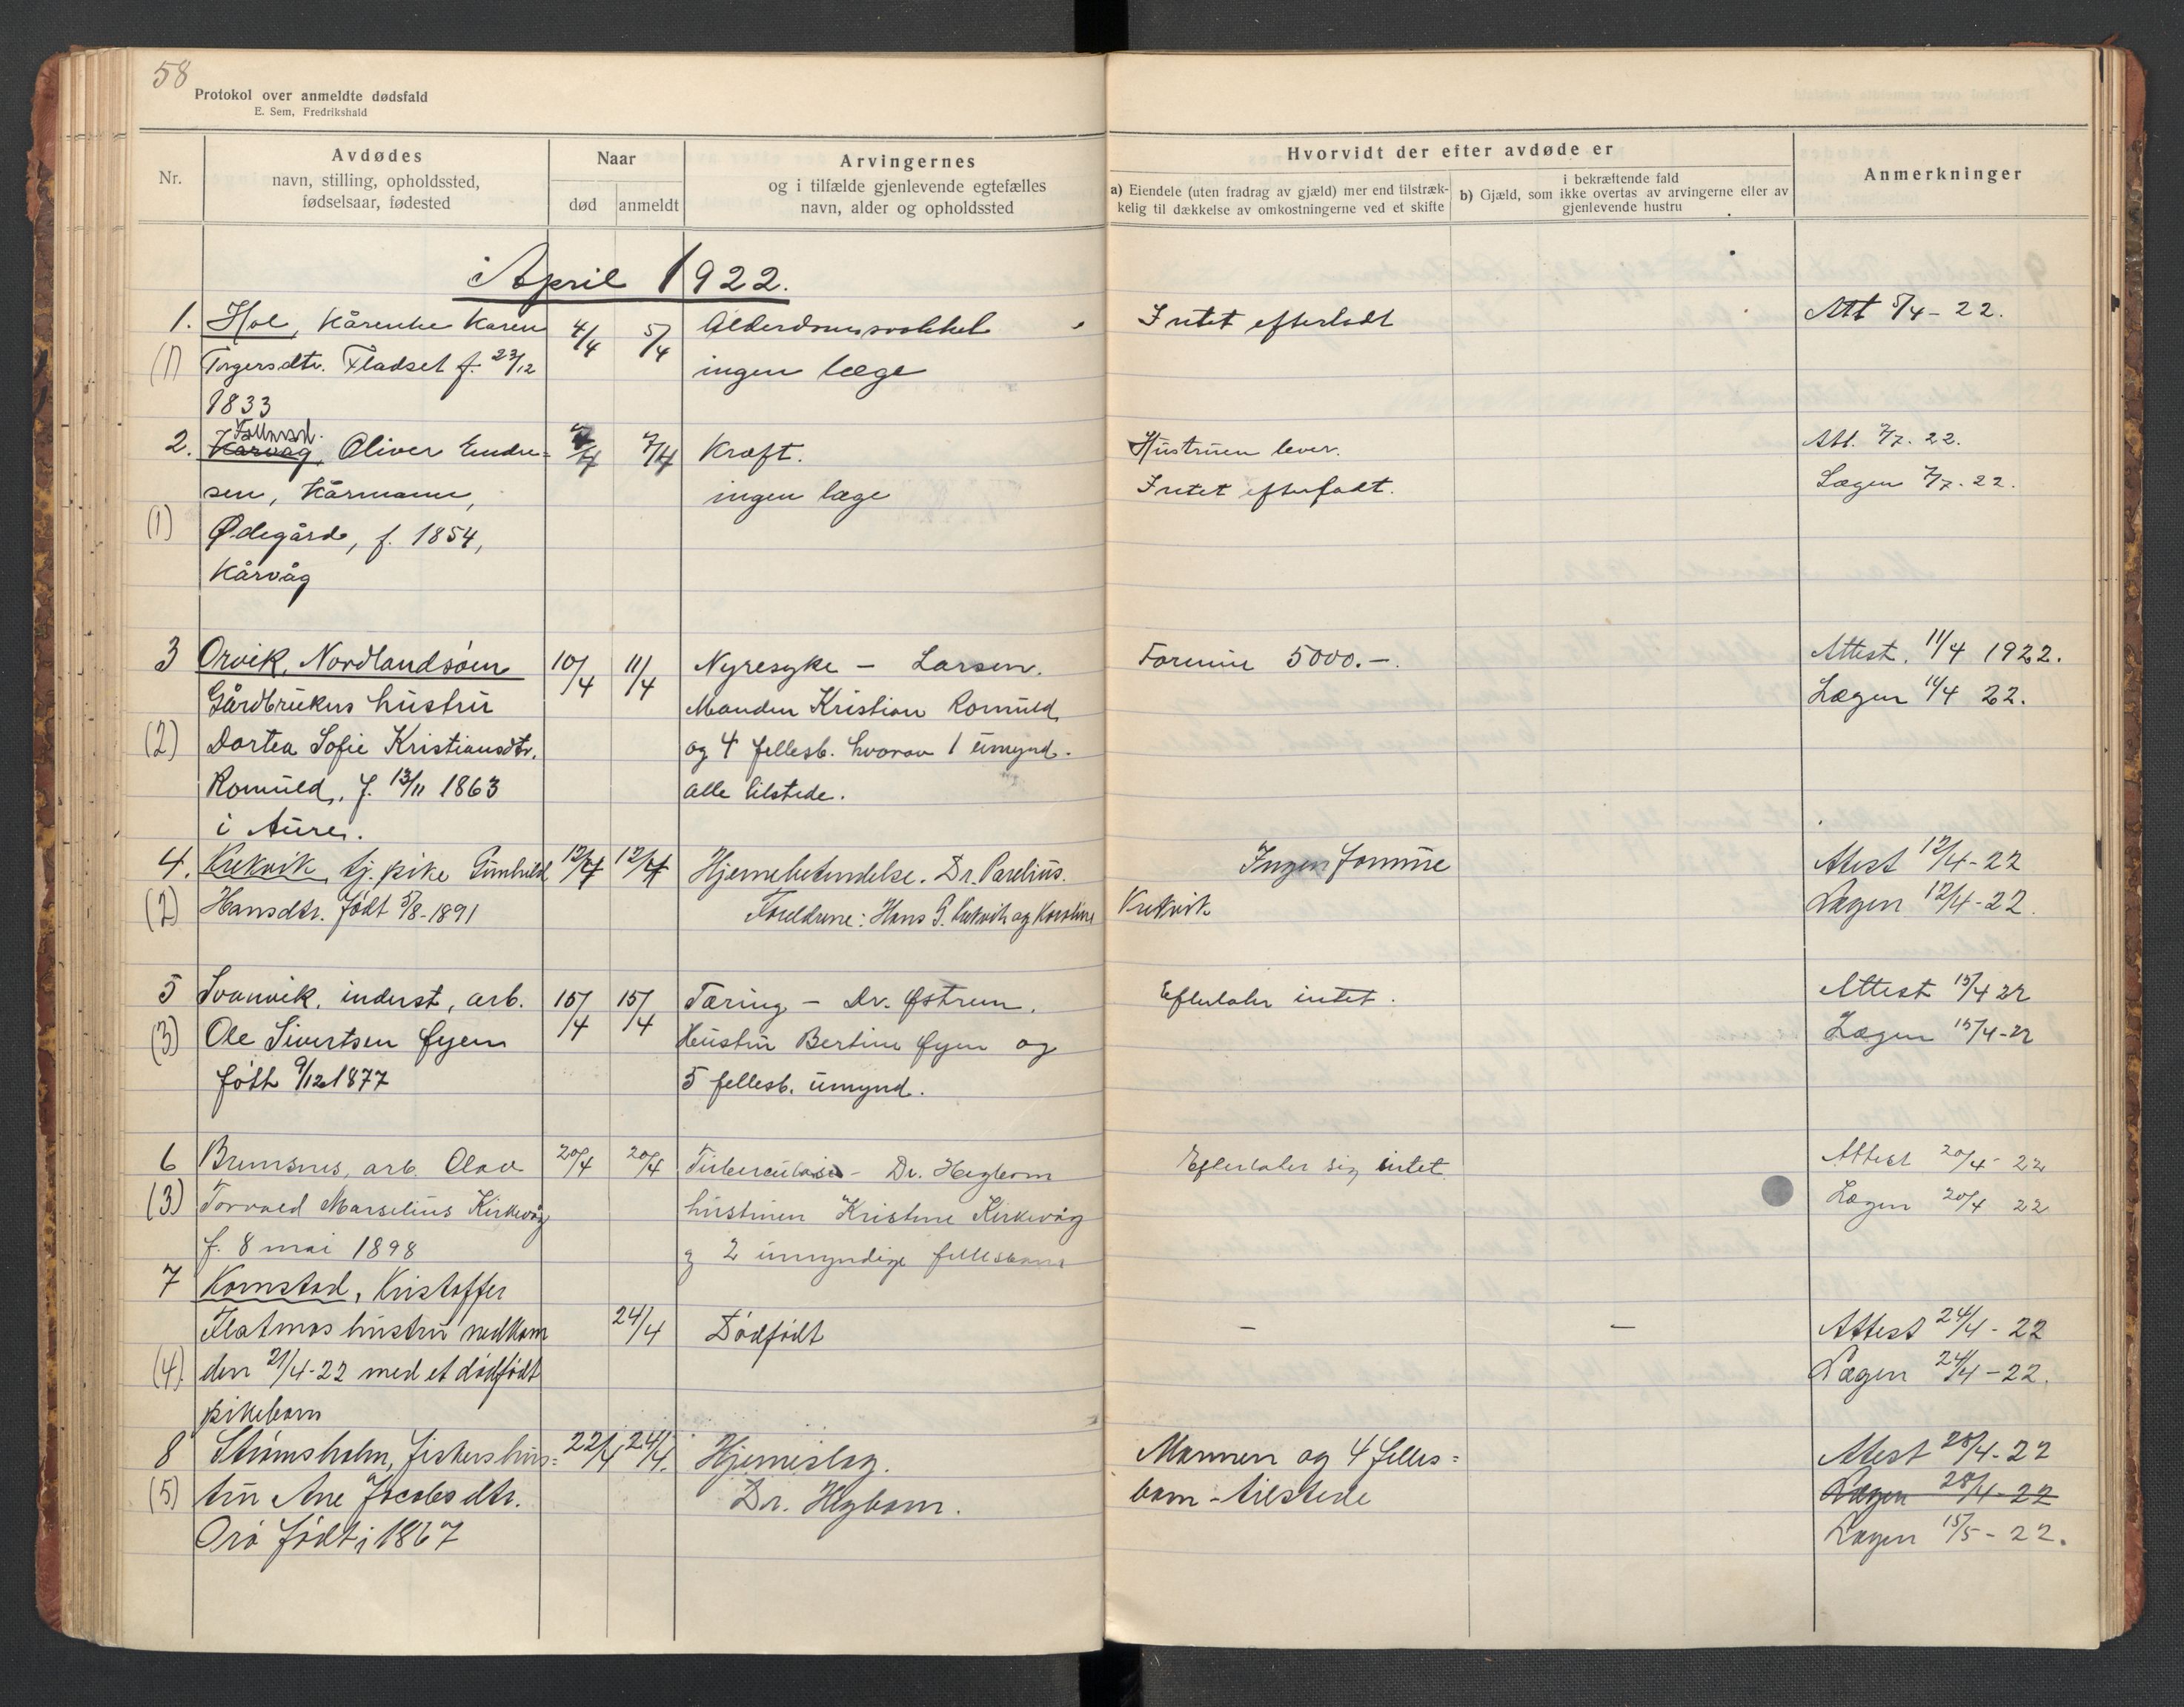 58
Protokol over anmeldte dødsfald
E. Sem, Fredrikshald
Nr.
Avdødes
navn, stilling, opholdssted,
fødselsaar, fødested
Naar
død
anmeldt
Arvingernes
og i tilfælde gjenlevende egtefælles
navn, alder og opholdssted
Hvorvidt der efter avdøde er
a) Eiendele (uten fradrag av gjæld) mer end tilstræk-
kelig til dækkelse av omkostningerne ved et skifte
i bekræftende fald
b) Gjæld, som ikke overtas av arvingerne eller av
gjenlevende hustru
Anmerkninger
April 1922.
1. Hol, Kårenke Karen 4/4 5/4 Alderdomssvakhet Intet efterladt Att 5/4 - 22.
(1) Torgersdtr. Fladset f. 23/12 ingen læge
1833
2. Karvåg, Oliver Endre- 7/4 Kræft. Hustruen lever. Att. 7/7. 22.
sen, Kårmann, ingen læge Intet efterladt. Lægen 7/7. 22.
(1) Ødegård, f. 1854,
Kårvåg
3 Orvik, Nordlandsøen 10/4 11/4 Nyresyke - Larsen. Formue 5000.- Attest. 11/4 1922.
Gårdbrukers hustru Manden Kristian Romuld Lægen 11/4 22.
(2) Dortea Sofie Kristiansdtr. og 4 fellesb. hvorav 1 umynd.
Romuld, f. 13/11 1863 alle tilstede.
i Aure.
4. Krekvik, tj. pike Gunhild 12/4 12/4 Hjernebetendelse. Dr. Parelius. Ingen formue Attest 12/4-22
(2) Hansdtr. Født 5/8-1891 Foreldrene: Hans G. Krekvik og Karoline Krekvik Lægen 12/4-22.
5 Svanvik, inderst, arb. 15/4 15/4 Tæring - Dr. Østrem. Efterlater intet. Attest 15/4 22
(3) Ole Sivertsen Øyen Hustru Bertine Øyen og Lægen 15/4-22
født 9/12 1877 5 fellesb. umynd.
6 Bremsnes, arb. Olav 20/4 20/4 Tuberculose - Dr. Hegbom Efterlater sig intet. Attest 20/4 - 22
(3) Torvald Marselius Kirkevåg hustruen Kristine Kirkevåg Lægen 20/4 22
f. 8 mai 1898 og 2 umyndige fellesbarn
7 Kornstad, Kristoffer
Flatmos hustru nedkom 24/4 Dødfødt - - Attest 24/4 - 22
(4) den 21/4-22 med et dødfødt Lægen 24/4 - 22.
pikebarn
8 Strømsholm, fiskers hus= 22/4 24/4. Hjerneslag. Mannen og 4 felles= Attest 28/4-22
(5) tru Ane Jacobsdtr. Dr. Hegbom. barn - tilstede Lægen 28/4-22
Orø født i 1867 Lægen 15/5 - 22.